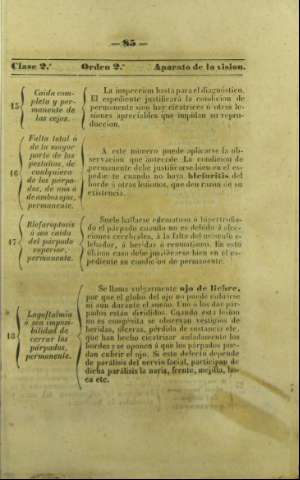 — 85 —
Clase 2.ª Orden 2.º Aparato de la vision.
15
Caida com-
pleta y per-
manente de
las cejas.
La inspeccion basta para el diagnóstico.
El espediente justificará la condicion de
permanente sino hay cicatrices ú otras le-
siones apreciables que impidan su repro-
duccion.
16
Falta total ó
de la mayor
parte de las
pestañas, de
cualquiera
de los párpa-
dos, de uno ó
de ambos ojos,
permanente.
A este número puede aplicarse la ob-
servacion que antecede. La condicion de
permanente debe justificarse bien en el es-
pediente cuando no haya blefaritis del
borde ú otras lesiones, que den razon de su
existencia.
17
Blefaroptosis
ó sea caida
del párpado
superior,
permanente.
Suele hallarse edematoso ó hipertrofia-
do el párpado cuando no es debido á afec-
ciones cerebrales, á la falta del músculo e-
levador, á heridas ó reumatismo. En este
último caso debe justificarse bien en el es-
pediente su condicion de permanente.
18
Lagoftalmia
ó sea imposi-
bilidad de
cerrar los
párpados,
permanente.
Se llama vulgarmente ojo de liebre,
por que el globo del ojo no puede cubrirse
ni aun durante el sueño. Uno ó los dos pár-
pados están divididos. Cuando esta lesion
no es congénita se observan vestigios de
heridas, úlceras, pérdida de sustancia etc.
que han hecho cicatrizar aisladamente los
bordes y se oponen á que los párpados pue-
dan cubrir el ojo. Si este defecto depende
de parálisis del nervio facial, participan de
dicha parálisis la nariz, frente, mejilla, bo-
ca etc.